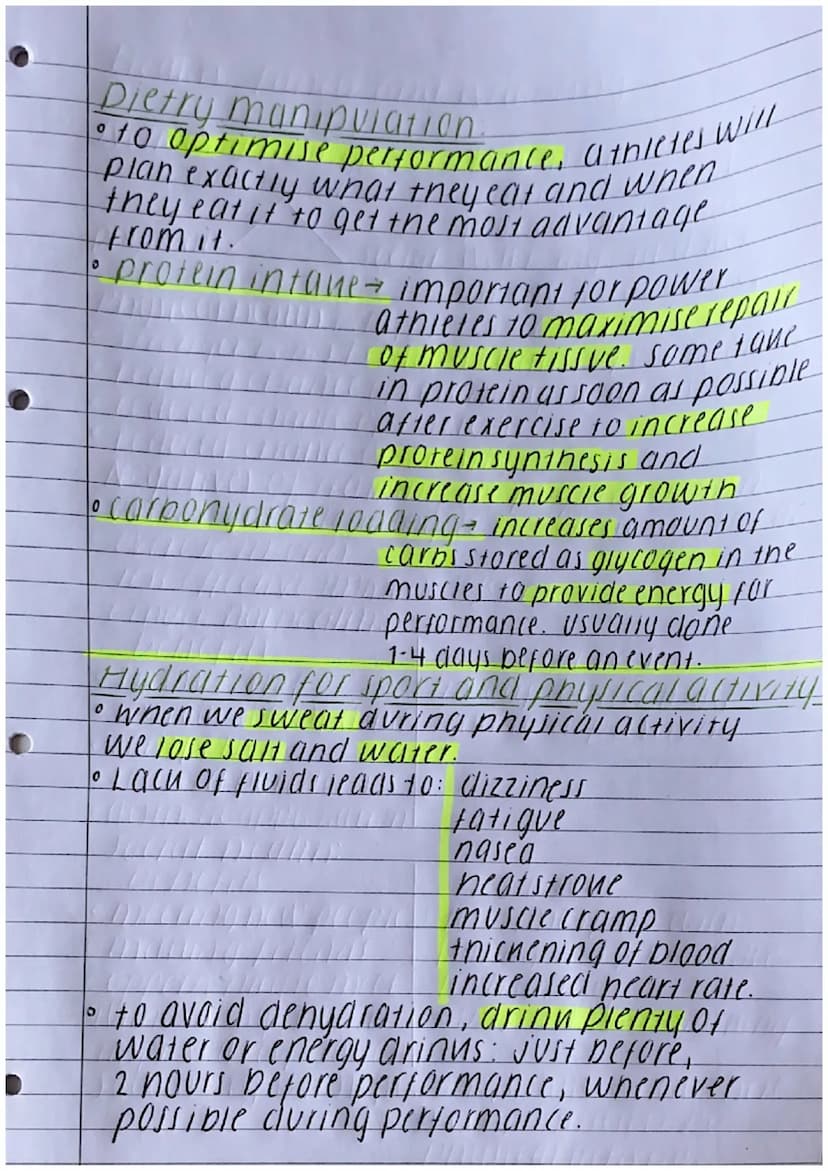 Dietry manipulation.
• to optimise performance, athletes will
plan exactly what they eat and when
they eat it to get the most advantage
from it.
• protein intake → important for power
athletes to maximise repair
of muscle tissue. some take
in protein as soon as possible
after exercise to increase
protein synthesis and
increase muscle growth
• carbohydrate loading → increases amount of
carbs stored as glycogen in the
muscles to provide energy for
performance. usually done
1-4 days before an event.
Hydration for sport and physical activity
• when we sweat during physical activity
we lose salt and water.
• Lack of fluids leads to: dizziness
fatigue
nasea
heatstroke
muscle cramp
thickening of blood
increased heart rate.
• to avoid dehydration, drink plenty of
water or energy drinks: just before,
2 hours before performance, whenever
possible during performance.